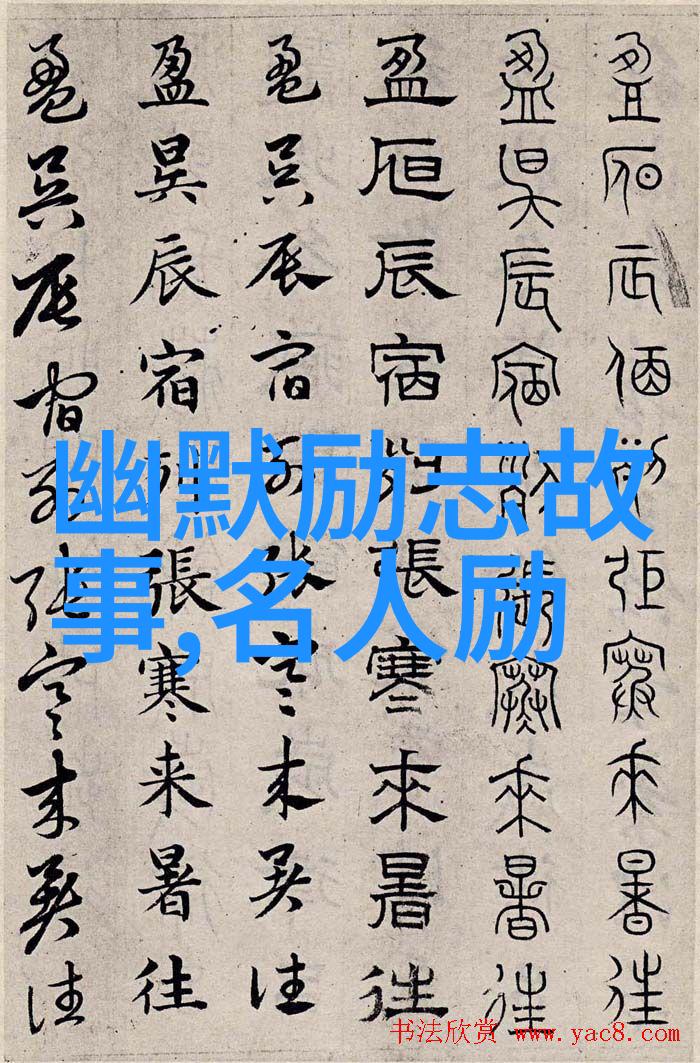 盈昃辰宿列張寒來暑往
盈昃辰宿列張寒來暑往
盈昃辰宿列張寒來暑往
盈昃辰宿列張寒来暑往
盈昃辰宿列張寒来暑往
盈昃辰宿列張寒来暑往
幽默励志故
事,名人励
书法欣赏 www.yac8.com